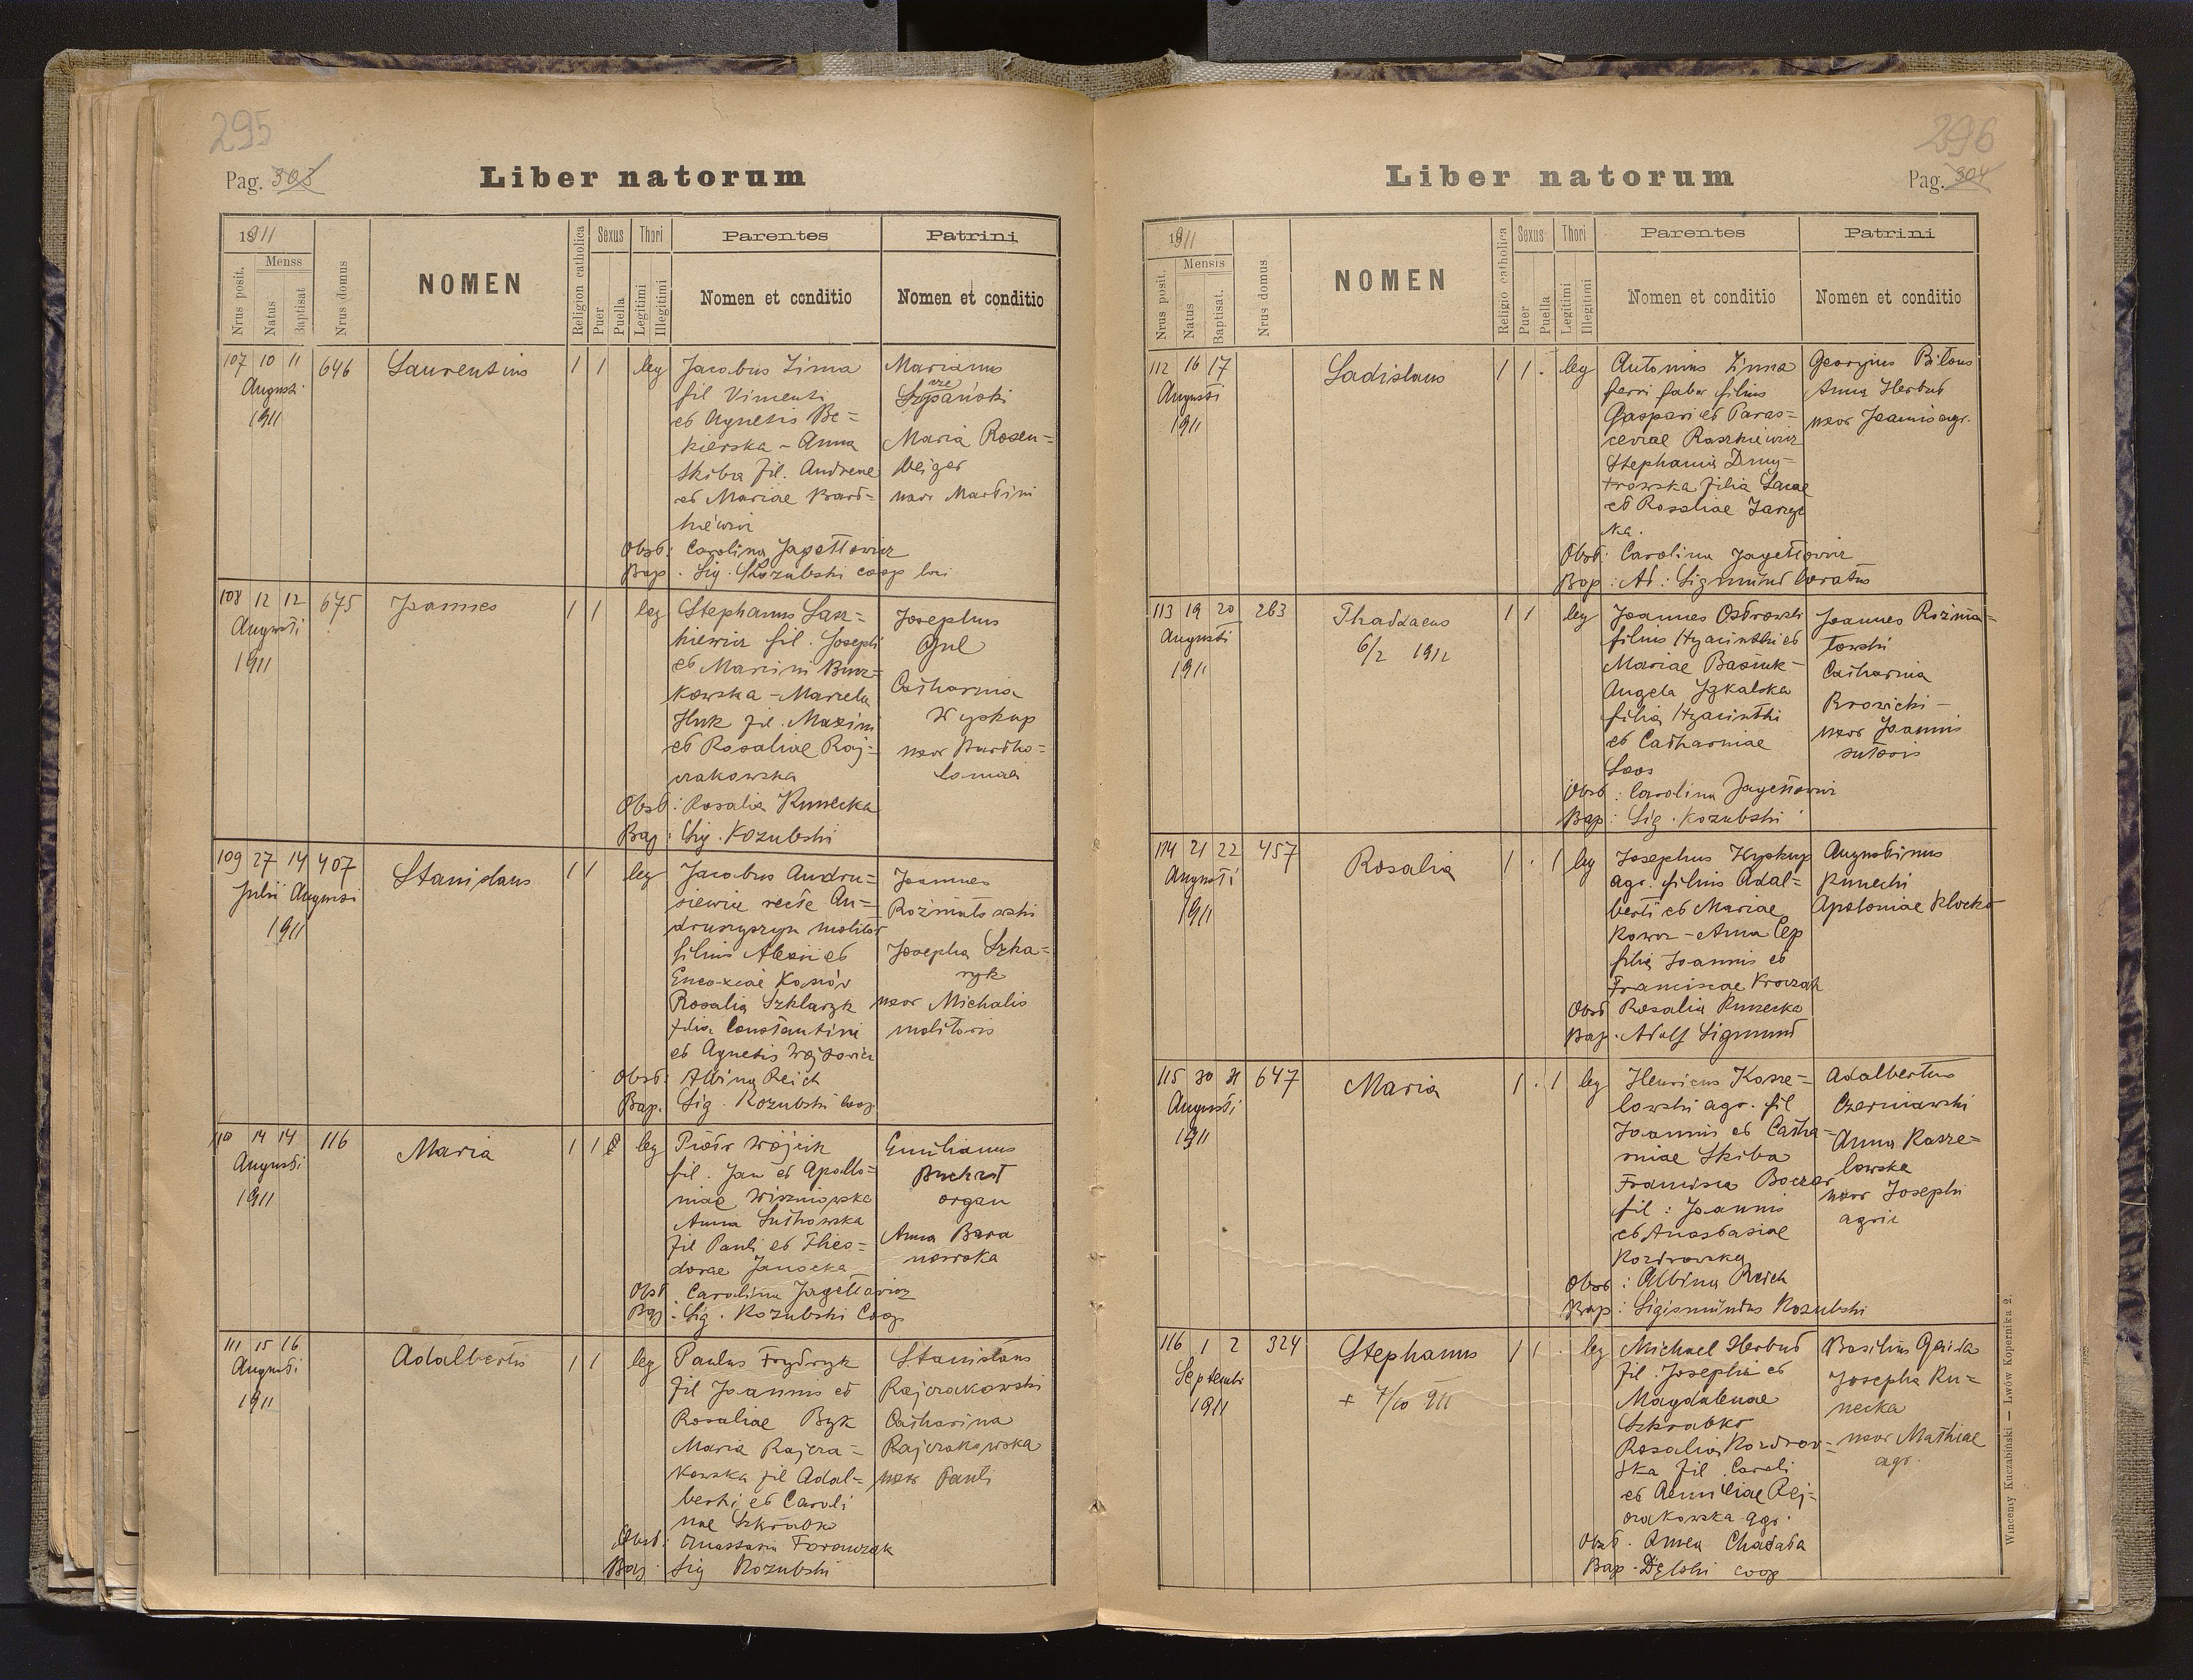 295
Pag. 303
Liber natorum
1911
Menss
Nrus posit.
Natus
Baptisat
Nrus domus
NOMEN
Religion catholica
Sexus
Puer
Puella
Thori
Legitimi
Illegitimi
Parentes
Nomen et conditio
Patrini
Nomen et conditio
107 10 11 646 Laurentius 1 1 leg
Augusti
1911
Jacobus Zima
fil Vincenti
et Agnetis Be=
kierska - Anna
Skiba fil. Andreae
et Mariae Bart=
Marianus
Maria Rosen=
weiger
uxor Martini
Obst: Carolina Jagełłowicz
Bap. Sig. Kozubski coop loci
108 12 12 675 Joannes 1 1 leg
Augusti
1911
Stephanus Lasz=
kiewicz fil. Josephi
et Marcini Bucz=
kowska - Marcela
Huk fil. Maximi
et Rosaliae Raj=
czakowska
Josephus
Gul
Catharina
Wyskup
uxor Bartho=
lomaei
Obst: Rosalia Kunecka
Bap: Sig. Kozubski
109 27 14 407 Stanislaus 1 1 leg
Julii Augusti
1911
Jacobus Andru=
siewicz recte An=
druszyszyn molitor
filius Alexii et
Rosalia Szklarzyk
filia Constantini
et Agnetis Wojtowicz
Joannes
Rozmiatowski
Josepha Szka=
ryk
uxor Michalis
molitoris
Obst: Albina Reich
Bap. Sig. Kozubski coop
110 14 14 116 Maria 1 1 leg
Augusti
1911
Piotr Wójcik
fil. Jan et Apollo=
niae Wiszniowska
Anna Sutkowska
fil Pauli et Theo=
dorae Janocka
Emilianus
organ
Anna Bara
nowska
Obst. Carolina Jagełłowicz
Bap: Sig. Kozubski Coop
111 15 16 Adalbertus 1 1 leg
Augusti
1911
Paulus Frydryk
fil Joannis et
Rosaliae Byk
Maria Rajcza=
kowska fil Adal=
berti et Caroli
nae Szkrabko
Stanislaus
Rajczakowski
Catharina
Rajczakowska
uxor Pauli
Obst: Anastasia
Bap. Sig Kozubski
296
Pag. 304
Liber natorum
1911
Mensis
Nrus posit.
Natus
Baptisat.
Nrus domus
NOMEN
Religio catholica
Sexus
Puer
Puella
Thori
Legitimi
Illegitimi
Parentes
Nomen et conditio
Patrini
Nomen et conditio
112 16 17 Ladislaus 1 1 . leg
Augusti
1911
Antonius Zima
ferri faber filius
Gaspari et Paras=
ceviae Raszkiewicz
Stephania Dmy=
trowska filia Lucae
et Rosaliae
Georgius Bilous
Anna Herbut
uxor Joannis agr.
Obst: Carolina Jagełłowicz
Bap: Ad: Sigmund Curatus
113 19 20 263 Thaddaeus 1 1 leg
Augusti
1911
6/2 1912
Joannes Ostrowski
filius Hyacinthi et
Mariae Basiuk-
Angela
filia Hyacinthi
et Catharinae
Joannes Rozmia=
towski
Catharina
Browicki -
uxor Joannis
sutoris
Obst: Carolina Jagełłowicz
Bap: Sig. Kozubski
114 21 22 457 Rosalia 1 . 1 leg
Augusti
1911
Josephus Wyskup
agr. filius Adal=
berti et Mariae
Kowcz - Anna Cep
filia Joannis et
Franciscae Kroczak
Augustinus
Kunecki
Apoloniae Klocko
Obst Rosalia Kunecka
Bap. Adolf Sigmund
115 30 31 647 Maria 1 . 1 leg
Augusti
1911
Henricus Kosze=
lowski agr. fil
Joannis et Catha=
rinae Skiba
Francisca Boczar
fil: Joannis
et Anastasiae
Kozdrowska
Adalbertus
Czerniawski
Anna Kosze=
lowska
uxor Josephi
agric
Obst: Albina Reich
Bap: Sigismundus Kozubski
116 1 2 324 Stephanus 1 1 . leg
Septembr
1911
+ 7/10 911
Michael Herbut
fil. Josephi et
Magdalenae
Szkrabko
Rosalia Kozdrow=
ska fil. Caroli
et Aemiliae Rej=
czakowska agr.
Basilius Gaida
Josepha Ku=
necka
uxor Mathiae
agr.
Obst. Anna Chadada
Bap. coop
Wincenty Kuczabiński — Lwów Kopernika 2.